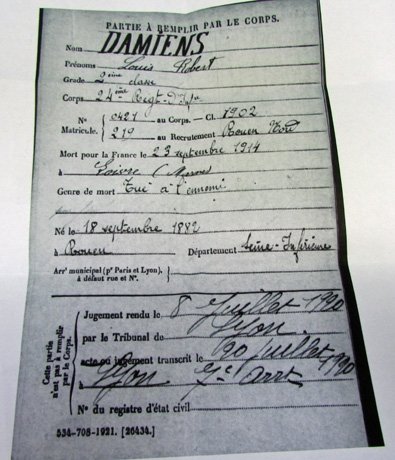 PARTIE À REMPLIR PAR LE CORPS.
Nom DAMIENS
Prénoms Louis Robert
Grade 2ème classe
Corps 24ème Régt d'Infie
N° 0421 au Corps. — Cl. 1902
Matricule. 219 au Recrutement Rouen Nord
Mort pour la France le 23 septembre 1914
à Loivre (Marne)
Genre de mort Tué à l'ennemi
Né le 18 septembre 1882
à Rouen Département Seine-Inférieure
Arrt municipal (pr Paris et Lyon),
à défaut rue et N°.
Cette partie
n'est pas à remplir
par le Corps.
Jugement rendu le 8 Juillet 1920
par le Tribunal de Lyon
acte ou jugement transcrit le 20 juillet 1920
à Lyon 7e Arrt
N° du registre d'état civil
534-708-1921. [26434.]